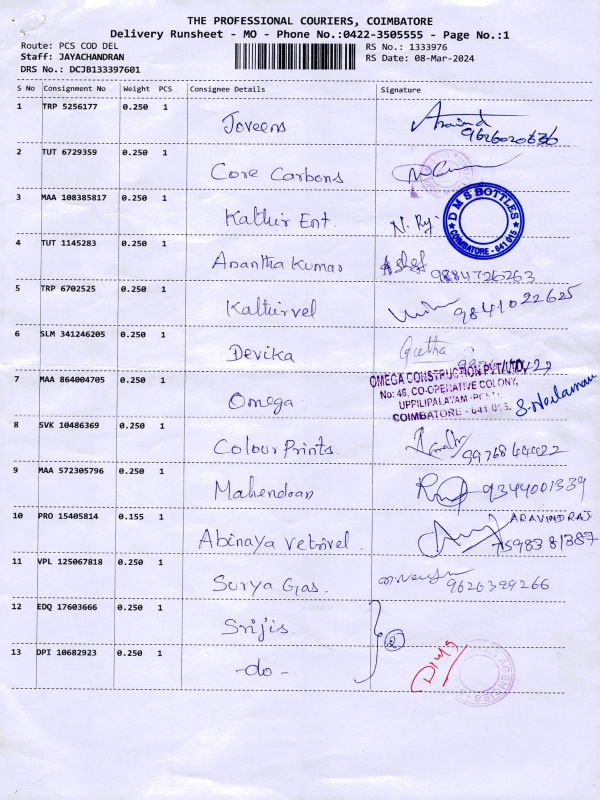 THE PROFESSIONAL COURIERS, COIMBATORE
Delivery Runsheet - MO - Phone No.:0422-3505555 - Page No.:1
Route: PCS COD DEL
Staff: JAYACHANDRAN
DRS No.: DCJB133397601
RS No.: 1333976
RS Date: 08-Mar-2024
S No Consignment No Weight PCS Consignee Details Signature
1 TRP 5256177 0.250 1 Joveens Aravind
9626020636
2 TUT 6729359 0.250 1 Core Carbons
3 MAA 108385817 0.250 1 Kathir Ent. N. Ry.
DMS BOTTLES
COIMBATORE - 641 015
4 TUT 1145283 0.250 1 Anantha Kumar 9884726263
5 TRP 6702525 0.250 1 Kathirvel 9841022625
6 SLM 341246205 0.250 1 Devika Geetha
7 MAA 864004705 0.250 1 Omega
OMEGA CONSTRUCTION PVT LTD,
No: 46, CO-OPERATIVE COLONY,
UPPILIPALAYAM
COIMBATORE - 641 015.
8 SVK 10486369 0.250 1 Colour Prints.
9 MAA 572305796 0.250 1 Mahendran 9344001339
10 PRO 15405814 0.155 1 Abinaya Vetrivel. ARAVINDRAJ
7598381387
11 VPL 125067818 0.250 1 Surya Gas. 9626399266
12 EDQ 17603666 0.250 1 Srijis
2
13 DPI 10682923 0.250 1 -do-
AGENCIES